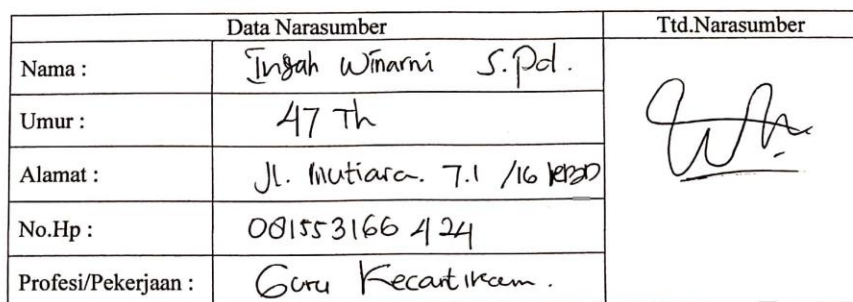 Data Narasumber Ttd.Narasumber
Nama : Ingah Winarni S.Pd.
Umur : 47 Th
Alamat : Jl. Mutiara. 7.1 /16
No.Hp : 081553166 424
Profesi/Pekerjaan : Guru Kecantikan.